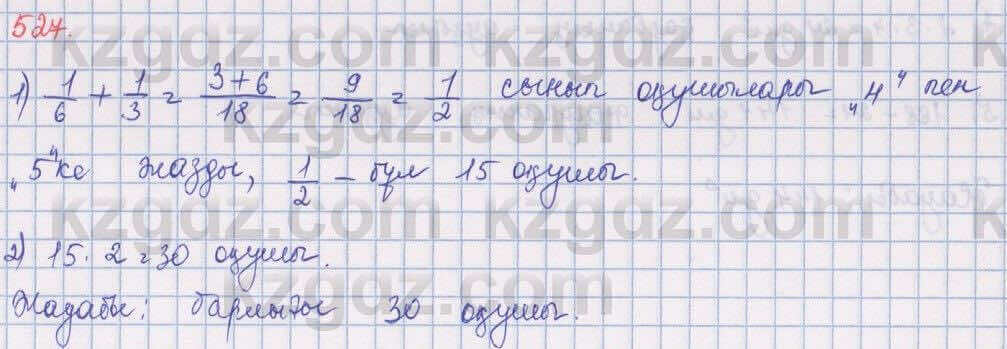 527.
1) 1/6 + 1/3 = 3+6/18 = 9/18 = 1/2 сынып оқушылары „4" пен
„5"ке жазды, 1/2 – бұл 15 оқушы.
2) 15 · 2 = 30 оқушы.
Жауабы: барлығы 30 оқушы.
kzgdz.com kzgdz.com
kzgdz.com kzgdz.com
kzgdz.com